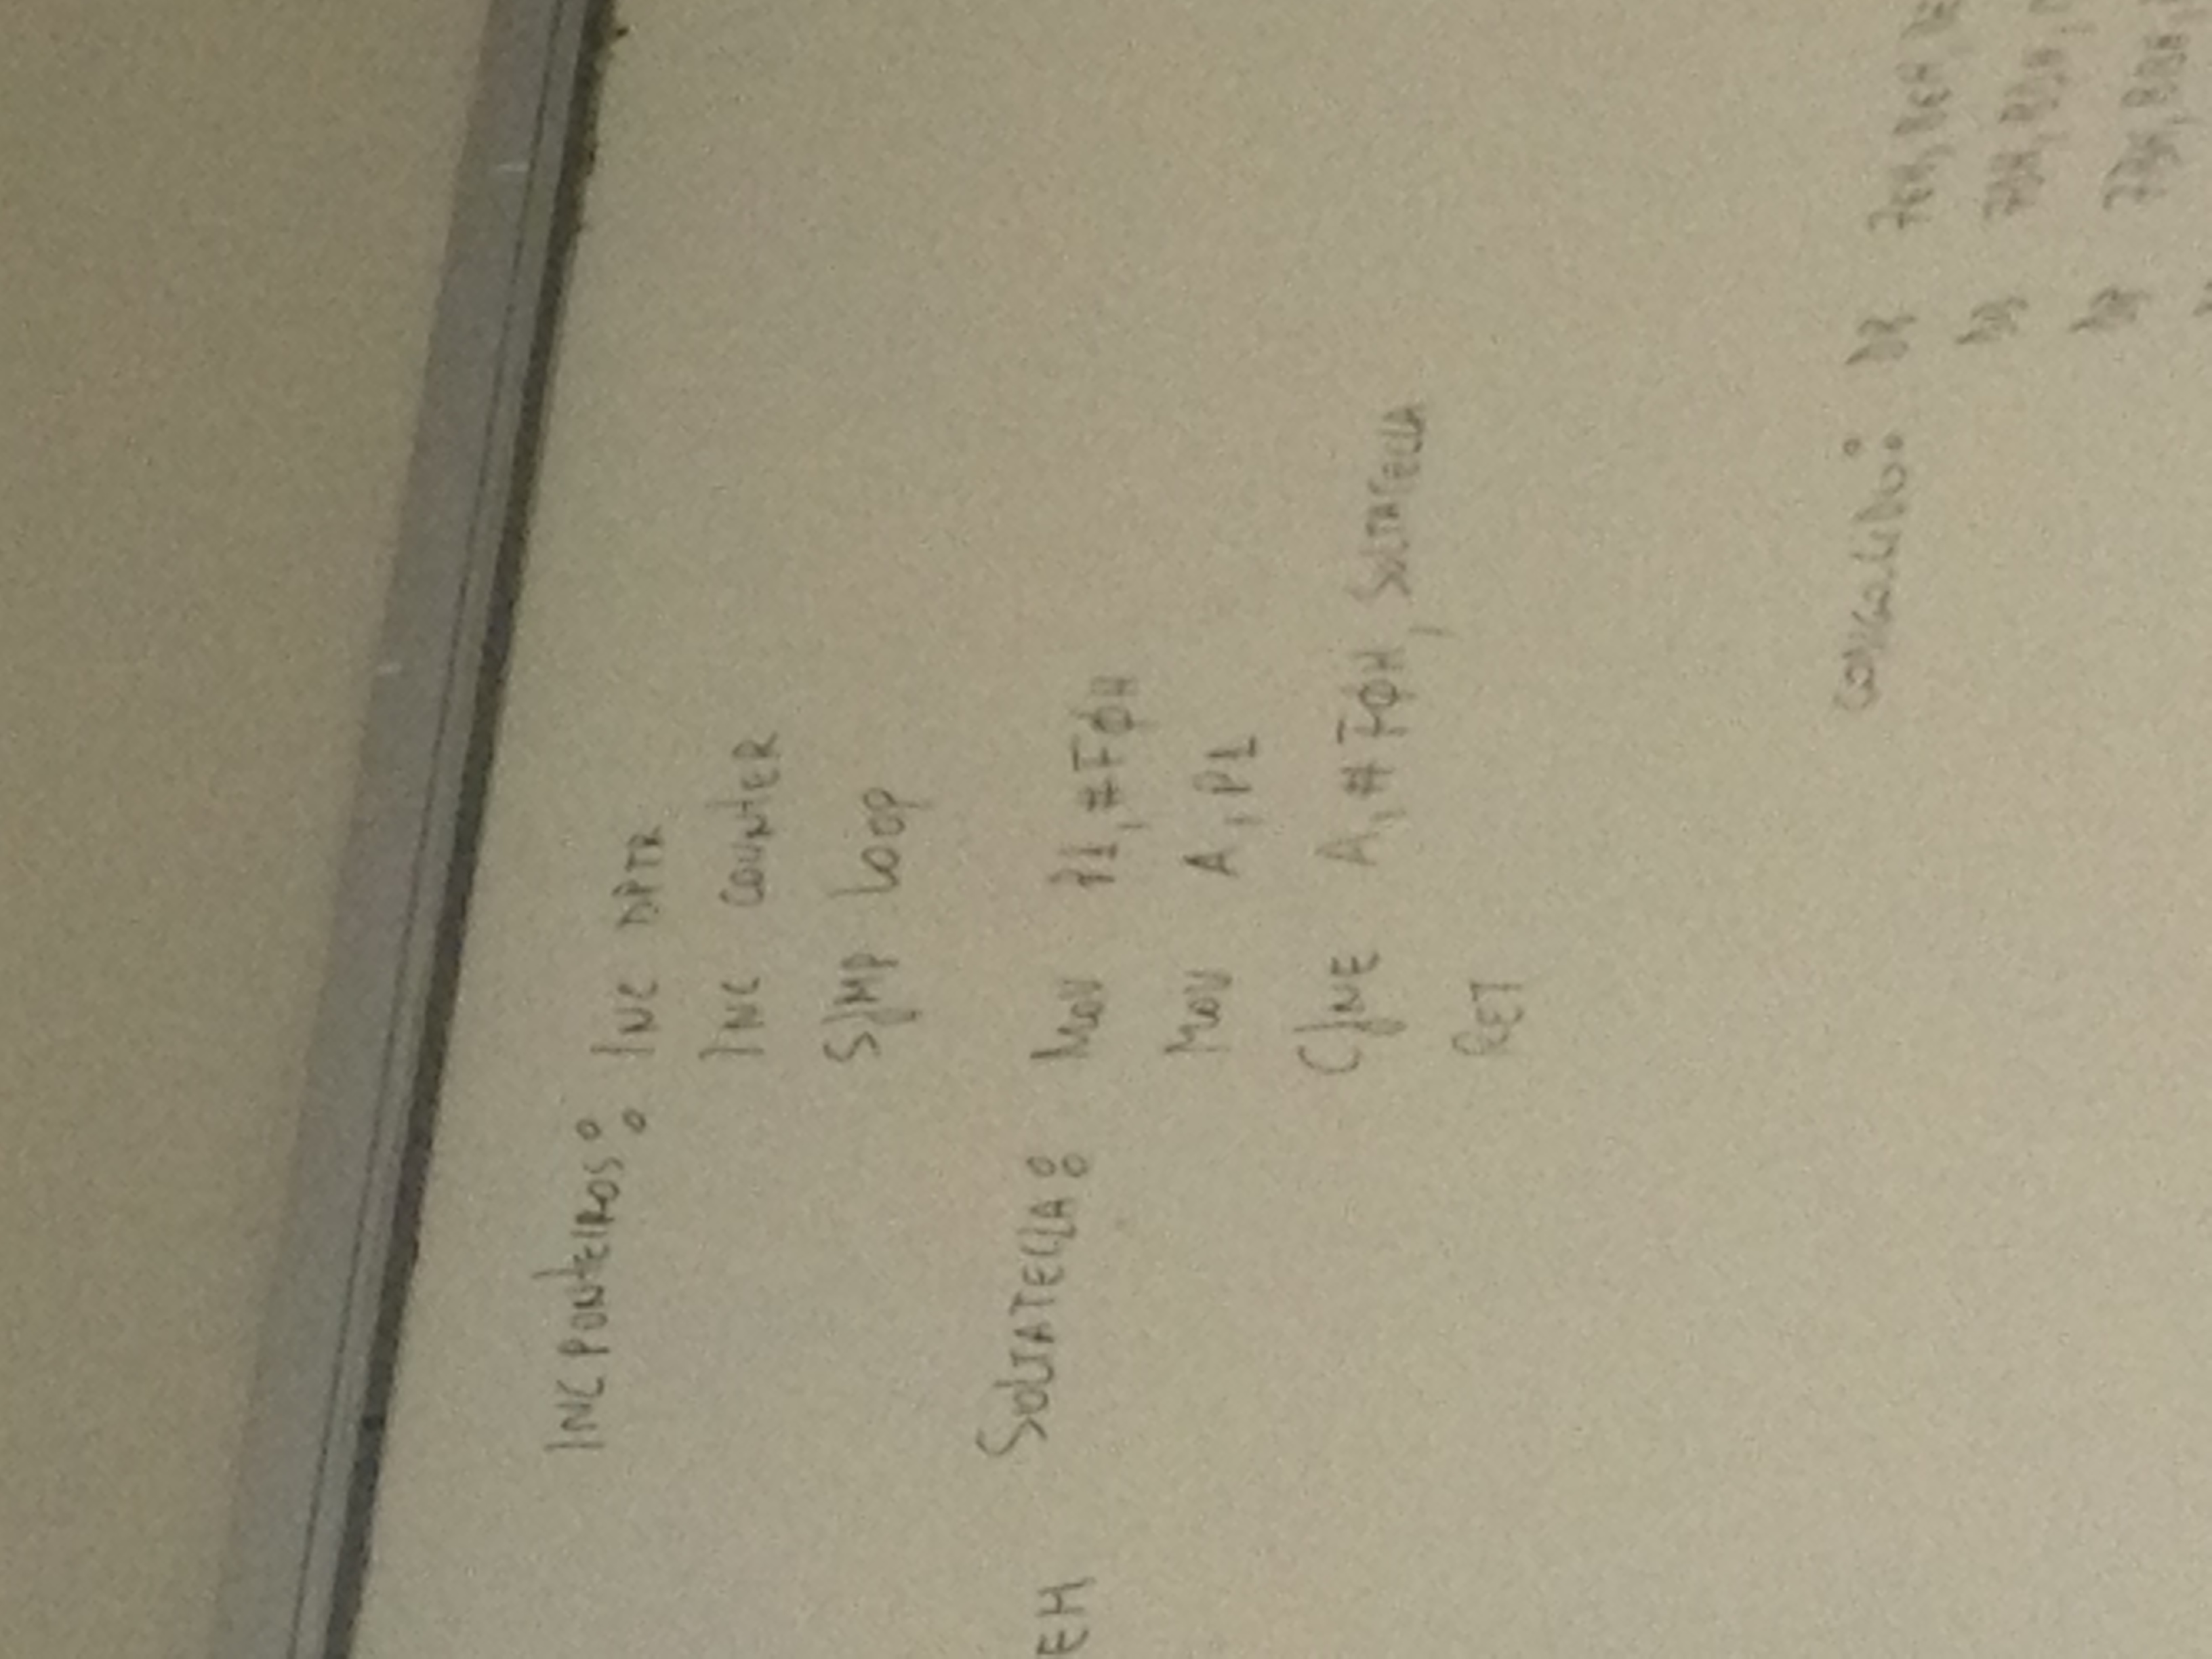 INCPONTEIROS: INC DPTR
INC COUNTER
SJMP LOOP
EH SOLTATECLA: MOV P1,#FØH
MOV A,P1
CJNE A,#FØH, SOLTATECLA
RET
DB 7EH, BEH,
DB 7DH, BDH,
DB 7BH, BBH,